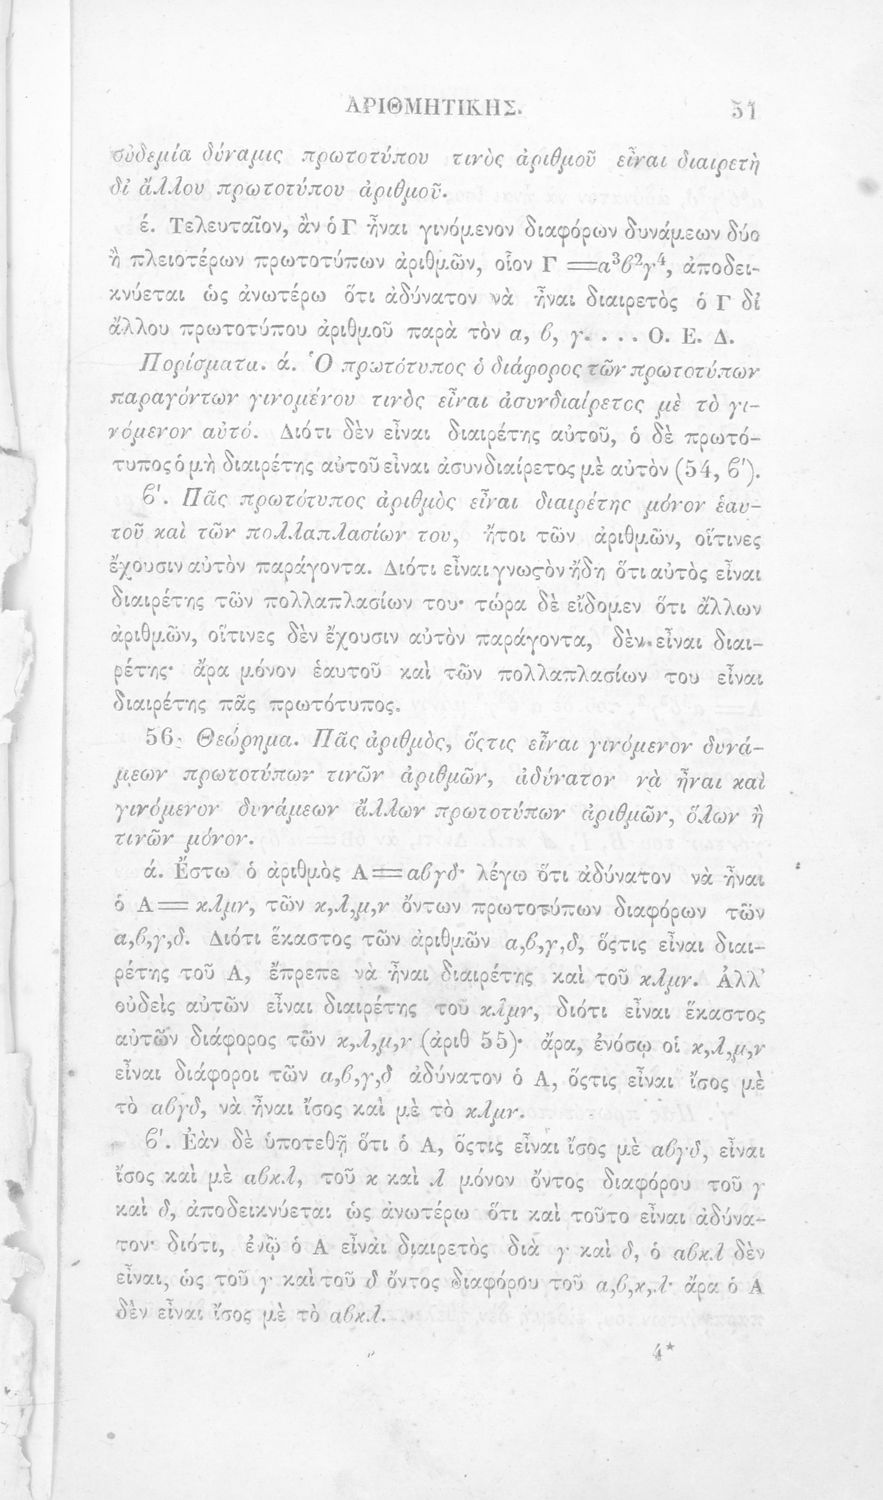 ΑΡΙΘΜΗΤΙΚΗΣ. 51
οὐδεμία δύναμις πρωτοτύπου τινὸς ἀριθμοῦ εἶναι διαιρετὴ
δἰ ἄλλου πρωτοτύπου ἀριθμοῦ.
έ. Τελευταῖον, ἂν ὁ Γ ἦναι γινόμενον διαφόρων δυνάμεων δύο
ἢ πλειοτέρων πρωτοτύπων ἀριθμῶν, οἷον Γ =α³β²γ⁴, ἀποδει-
κνύεται ὡς ἀνωτέρω ὅτι ἀδύνατον νὰ ἦναι διαιρετὸς ὁ Γ δἰ
ἄλλου πρωτοτύπου ἀριθμοῦ παρὰ τὸν α, β, γ. . . . Ο. Ε. Δ.
Πορίσματα. ά. Ὁ πρωτότυπος ὁ διάφορος τῶν πρωτοτύπων
παραγόντων γινομένου τινὸς εἶναι ἀσυνδιαίρετος μὲ τὸ γι-
νόμενον αὐτό. Διότι δὲν εἶναι διαιρέτης αὐτοῦ, ὁ δὲ πρωτό-
τυπος ὁ μὴ διαιρέτης αὐτοῦ εἶναι ἀσυνδιαίρετος μὲ αὐτὸν (54, β').
β'. Πᾶς πρωτότυπος ἀριθμὸς εἶναι διαιρέτης μόνον ἑαυ-
τοῦ καὶ τῶν πολλαπλασίων του, ἤτοι τῶν ἀριθμῶν, οἵτινες
ἔχουσιν αὐτὸν παράγοντα. Διότι εἶναι γνωϛὸν ἤδη ὅτι αὐτὸς εἶναι
διαιρέτης τῶν πολλαπλασίων του· τώρα δὲ εἴδομεν ὅτι ἄλλων
ἀριθμῶν, οἵτινες δὲν ἔχουσιν αὐτὸν παράγοντα, δὲν εἶναι διαι-
ρέτης· ἄρα μόνον ἑαυτοῦ καὶ τῶν πολλαπλασίων του εἶναι
διαιρέτης πᾶς πρωτότυπος.
56. Θεώρημα. Πᾶς ἀριθμὸς, ὅςτις εἶναι γινόμενον δυνά-
μεων πρωτοτύπων τινῶν ἀριθμῶν, ἀδύνατον νὰ ἦναι καὶ
γινόμενον δυνάμεων ἄλλων πρωτοτύπων ἀριθμῶν, ὅλων ἢ
τινῶν μόνον.
ά. Ἔστω ὁ ἀριθμὸς Α=αβγδ· λέγω ὅτι ἀδύνατον νὰ ἦναι
ὁ Α= κλμν, τῶν κ,λ,μ,ν ὄντων πρωτοτύπων διαφόρων τῶν
α,β,γ,δ. Διότι ἕκαστος τῶν ἀριθμῶν α,β,γ,δ, ὅςτις εἶναι διαι-
ρέτης τοῦ Α, ἔπρεπε νὰ ἦναι διαιρέτης καὶ τοῦ κλμν. Ἀλλ'
οὐδεὶς αὐτῶν εἶναι διαιρέτης τοῦ κλμν, διότι εἶναι ἕκαστος
αὐτῶν διάφορος τῶν κ,λ,μ,ν (ἀριθ 55)· ἄρα, ἐνόσῳ οἱ κ,λ,μ,ν
εἶναι διάφοροι τῶν α,β,γ,δ ἀδύνατον ὁ Α, ὅςτις εἶναι ἴσος μὲ
τὸ αβγδ, νὰ ἦναι ἴσος καὶ μὲ τὸ κλμν.
β'. Ἐὰν δὲ ὑποτεθῇ ὅτι ὁ Α, ὅςτις εἶναι ἴσος μὲ αβγδ, εἶναι
ἴσος καὶ μὲ αβκλ, τοῦ κ καὶ λ μόνον ὄντος διαφόρου τοῦ γ
καὶ δ, ἀποδεικνύεται ὡς ἀνωτέρω ὅτι καὶ τοῦτο εἶναι ἀδύνα-
τον· διότι, ἐνῷ ὁ Α εἶναι διαιρετὸς διὰ γ καὶ δ, ὁ αβκλ δὲν
εἶναι, ὡς τοῦ γ καὶ τοῦ δ ὄντος διαφόρου τοῦ α,β,κ,λ· ἄρα ὁ Α
δὲν εἶναι ἴσος μὲ τὸ αβκλ.
4*